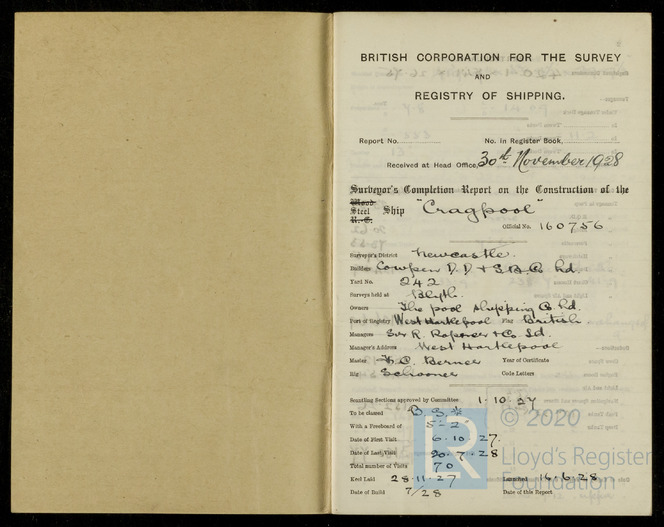 BRITISH CORPORATION FOR THE SURVEY
AND
REGISTRY OF SHIPPING.
Report No.
No. in Register Book,
Received at Head Office, 30th November 1928
Surveyor's Completion Report on the Construction of the
Wood
Steel Ship "Cragpool"
R.-C.
Official No. 160756
Surveyor's District Newcastle.
Builders Cowpen D. D. & S.B. Co Ld.
Yard No. 242
Surveys held at Blyth.
Owners The pool shipping Co Ld.
Port of Registry West Hartlepool Flag British
Managers Sir R. Ropner & Co. Ld.
Manager's Address West Hartlepool
Master C. Year of Certificate
Rig Schooner Code Letters
Scantling Sections approved by Committee 1.10.27
To be classed B.S.*
With a Freeboard of 5-2
Date of First Visit 6.10.27.
Date of Last Visit 20.7.28
Total number of Visits 70
Keel Laid 28.11.27 Launched 16.6.28
Date of Build 7/28 Date of this Report
© 2020
Lloyd's Register
Foundation